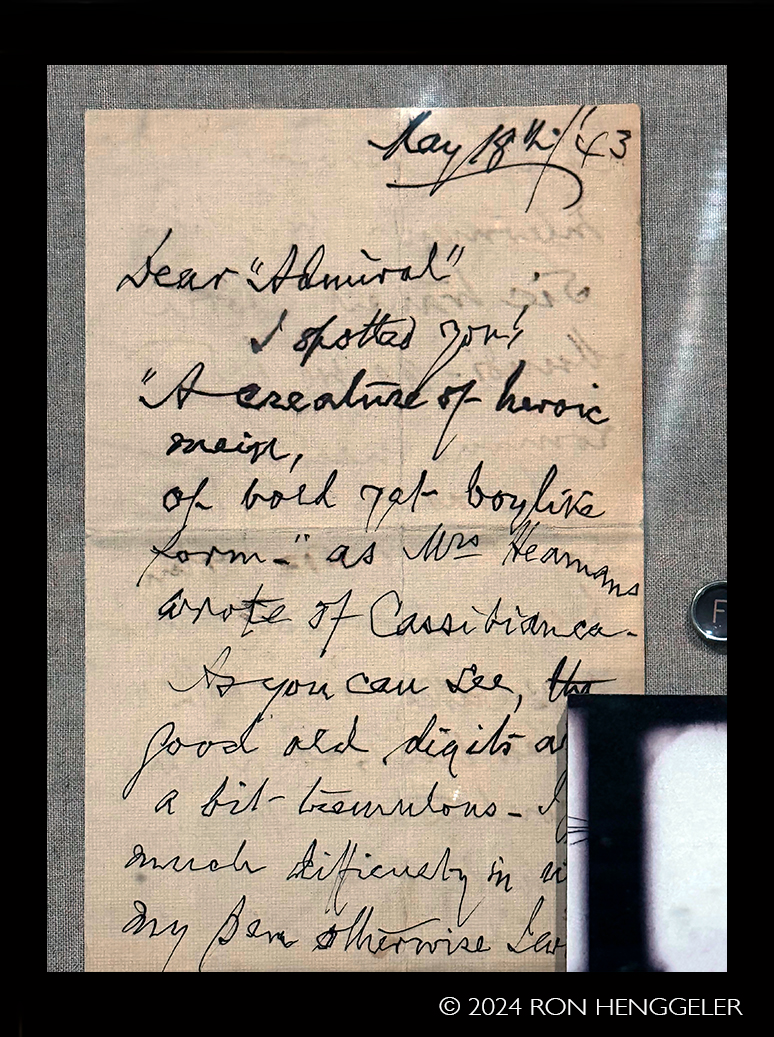 May 18th/43
Dear "Admiral"
I spotted you!
"A creature of heroic
of bold yet boylike
form-" as Mrs Heamans
wrote of Cassibianca-
As you can see, the
good old digits
a bit tremulous - I
much difficulty in
my pen otherwise
F
© 2024 RON HENGGELER